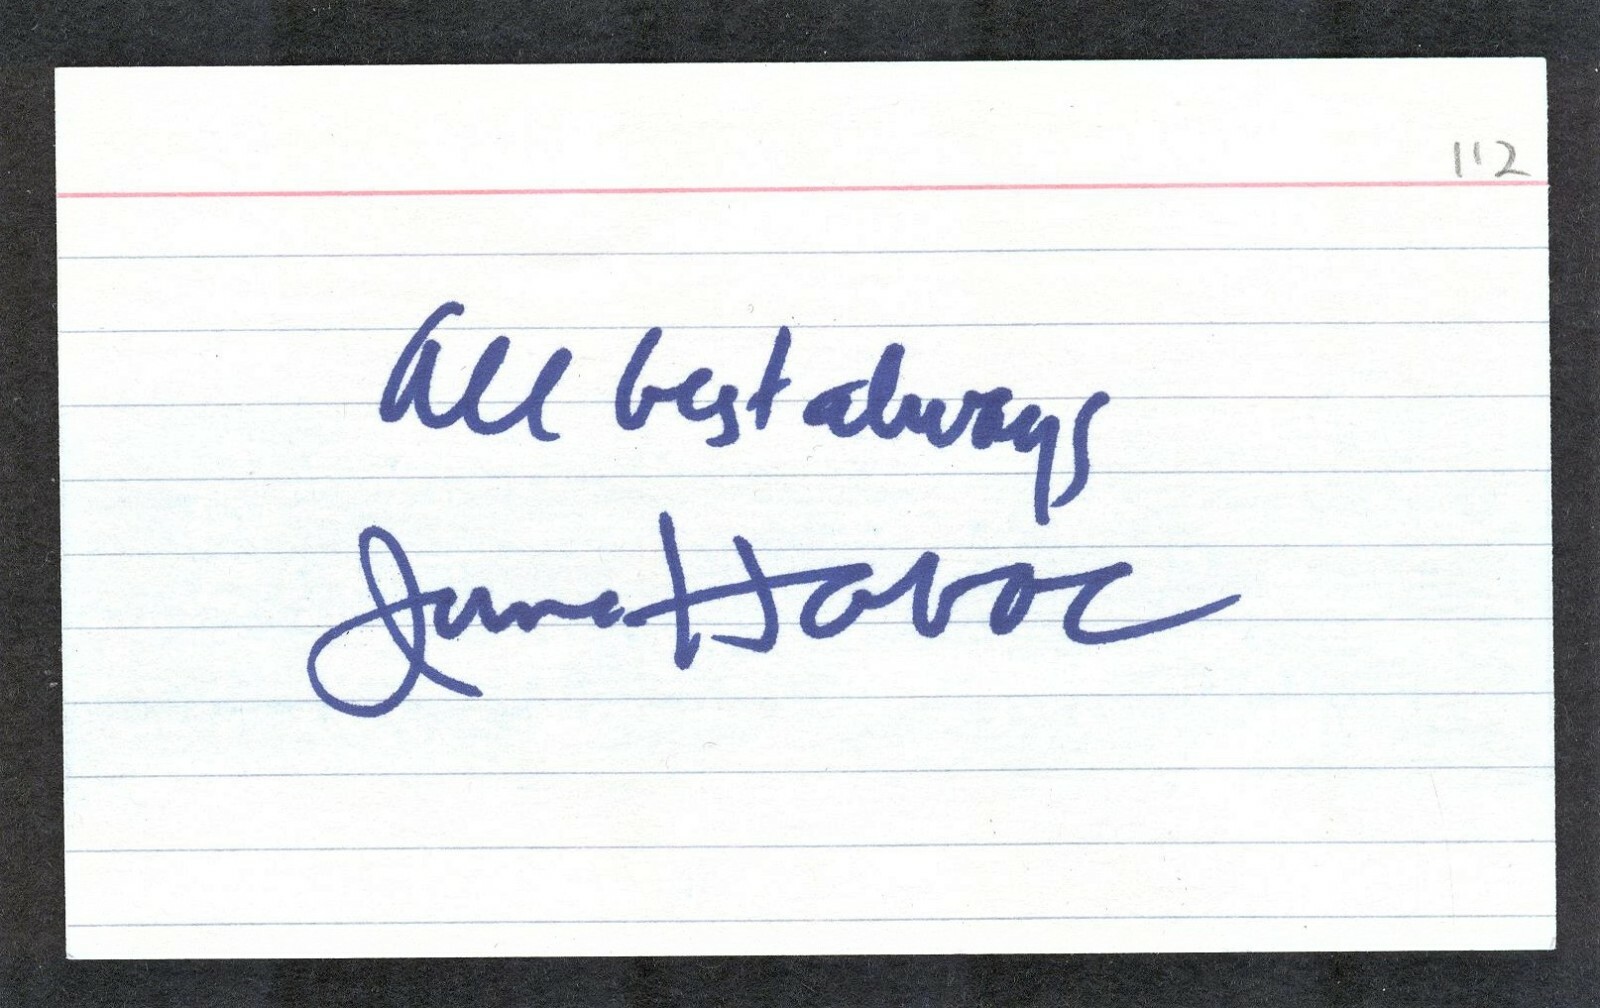 1'2
All best always
June Havoc